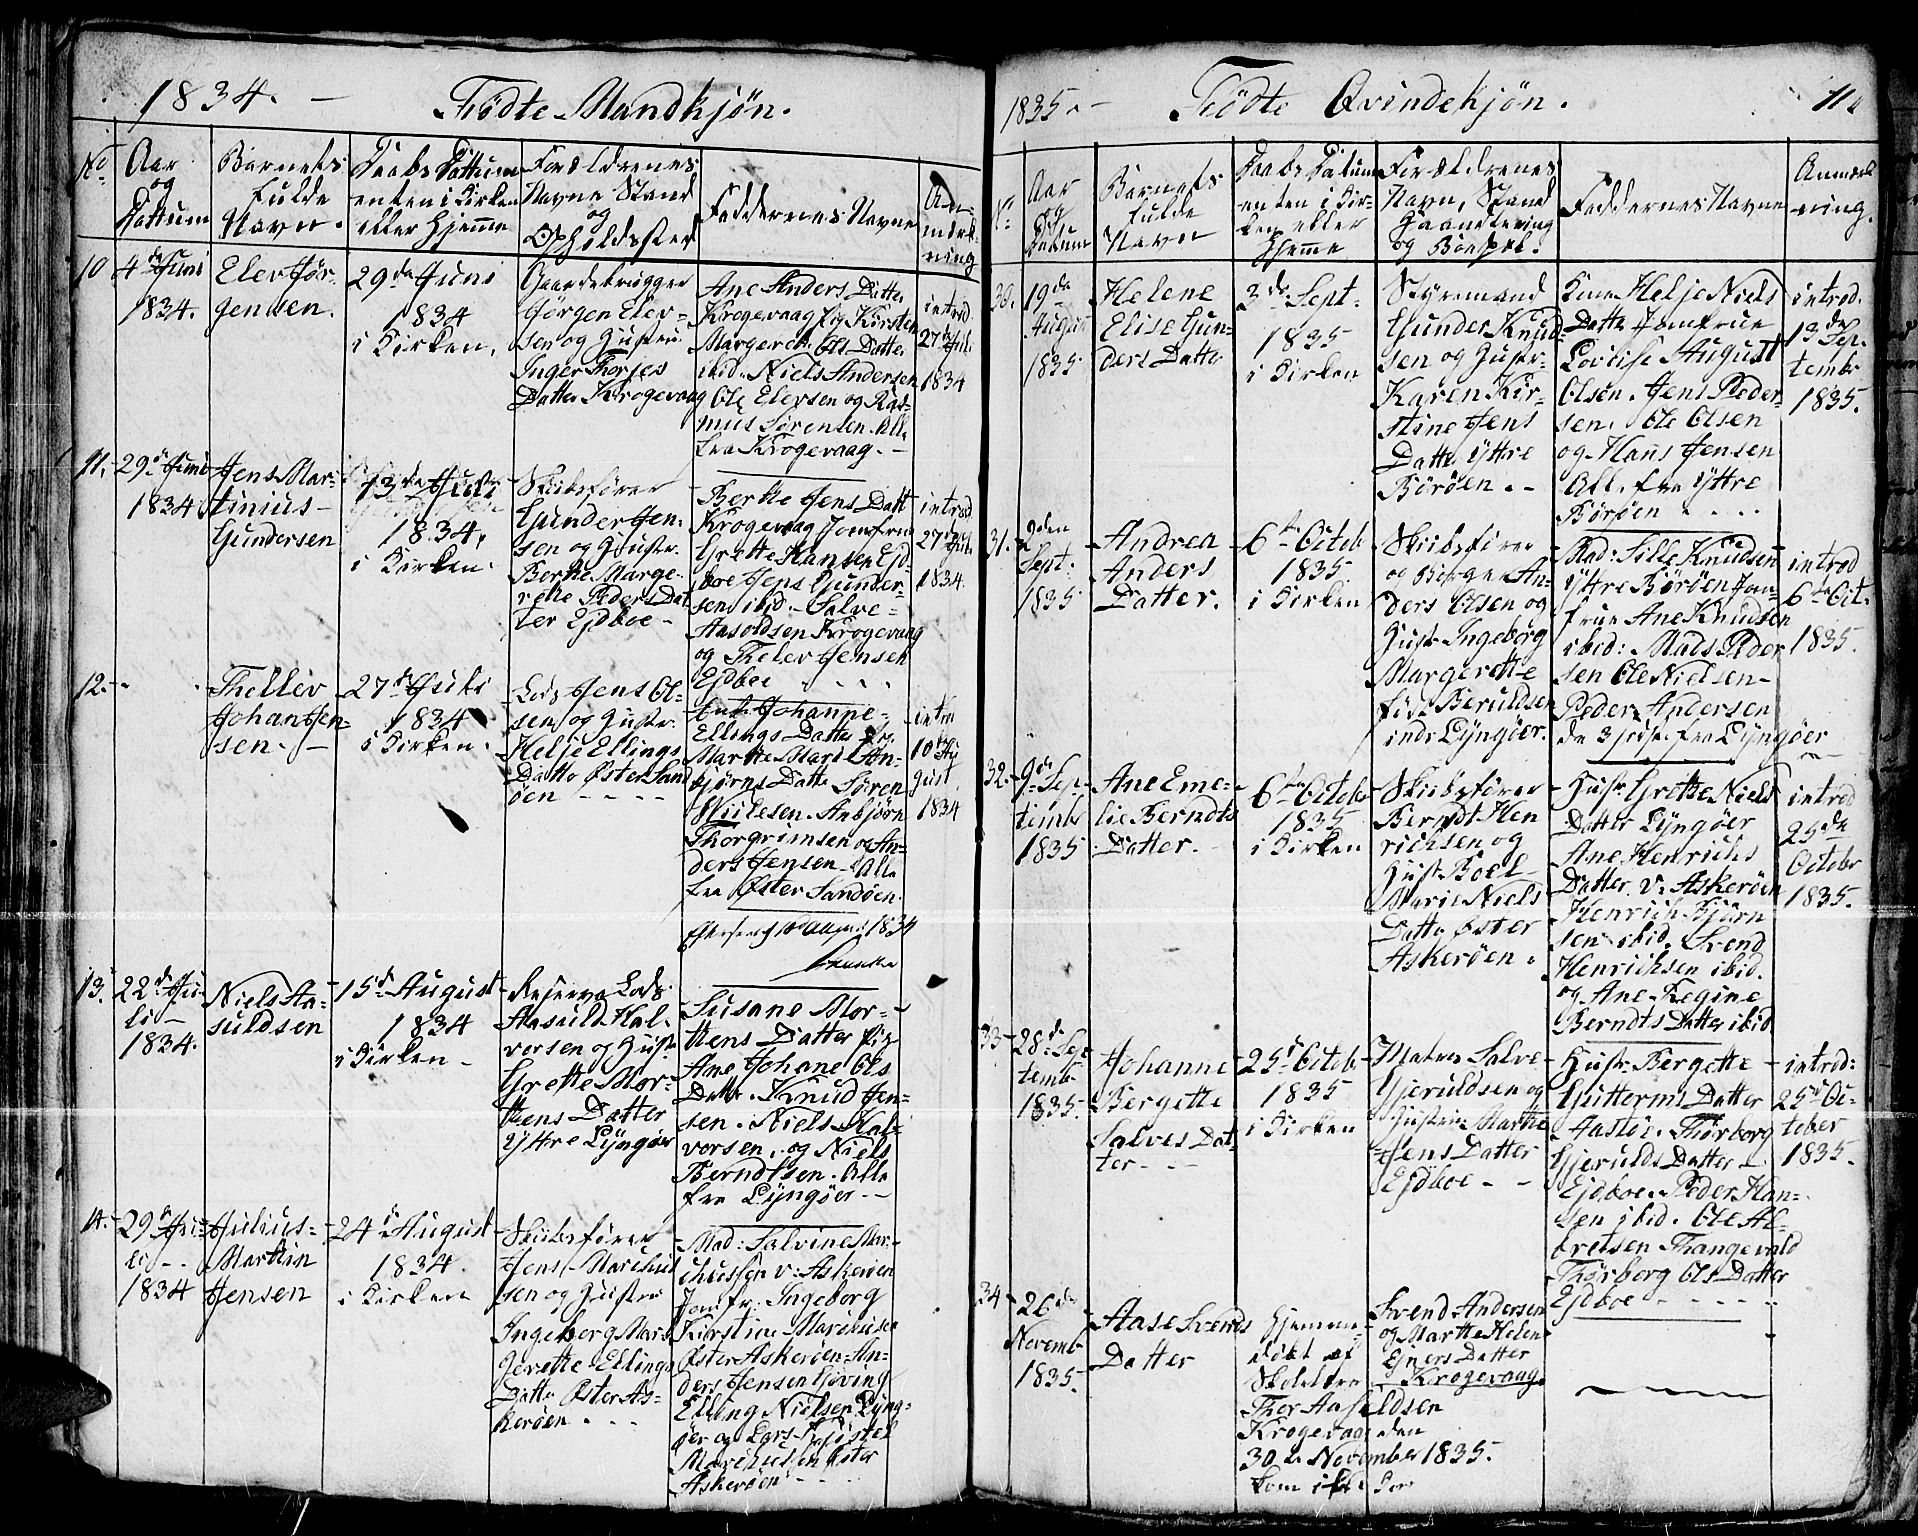 1834. –
Fødte Mandkjøn.
No
Aar
og
Dattum
Barnets
fulde
Navn.
Daabs Dattum
enten i Kirken
eller Hjemme
Forældrenes
Navne Stand
og
Opholdsted
Faddernes Navne
An-
mærk-
ning
10.
4de Juni
1834.
Elev Jør-
gensen.
29de Juni
1834
i Kirken.
Gaardebrugger
Jørgen Elev-
sen og Hustru
Inger Thorjes
Datter Krogevaag
Ane Anders Datter
Krogevaag Pig Kirsten
Margereth Ols Datter
ibid. Niels Andersen
Ole Elevsen og Ras-
mus Sørensen. Alle
fra Krogevaag. –
introd
27de Juli
1834
11.
29de Juni
1834
Jens Mar-
tinius
Gundersen
13de Juli
1834.
i Kirken.
Skibsfører
Gunder Jen-
sen og Hustr.
Berthe Marge-
rethe Peders Dat
ter Ejdboe –
Berthe Jens Datt
Krogevaag Jomfrue
Grethe Hansen Ejd-
boe Jens Gunder-
sen ibid. Salve
Aasoldsen Krogevaag
og Thelev Jensen
Ejdboe
introd
27de Juli
1834.
12.
Thellev
Johan Jen-
sen. –
27de Juli
1834
i Kirken.
Lods Jens Ol-
sen og Hustr.
Helje Ellings
Datter Øster Sand
øen
Johanne
Ellings Datter Pig.
Marthe Marie An-
bjørns Datter Søren
Niilesen. Anbjørn
Thorgrimsen og An-
ders Jensen Alle
fra Øster Sandøen.
introd
10de Au
gust
1834
Efterseet 1834
13.
22de Ju-
li –
1834.
Niels Aa-
suldsen
15de August
1834
i Kirken –
Reserve Lods
Aasuld Hal-
vorsen og Hustr
Grethe Mor-
tens Datter
Yttre Lyngøer
Susane Mor-
tens Datter Pig
Ane Johane Ols
Datter. Knud Jen-
sen. Niels Hal-
vorsen. og Niels
Berndtsen. Alle
fra Lyngøer –
14.
29de Ju-
li –
1834
Julius
Martin
Jensen
24de August
1834.
i Kirken
Skibsfører
Jens Marcelius
sen og Hustru
Ingeborg Mar-
gerette Ellings
Datter Øster As-
kerøen
Mad: Salvine Mar-
v: Askerøen
Jomfr: Ingeborg
Kirstine
Øster Askerøen. An-
ders Jensen Gjeving
Elling Nielsen Lyng-
øer og Lars
Øster
Askerøen
1835. –
Fødte Qvindekjøn.
No.
Aar
og
Datum
Barnets
fulde
Navn
Daabs Datum
enten i Kir-
ken eller
Hjemme
Forældrenes
Navn, Stand
Haandtering
og Boepæl.
Faddernes Navne
Anmærk
-ning.
30.
19de
August
1835
Helene
Elise Gun-
ders Datter
3de Sept
1835
i Kirken
Styremand
Gunder Knud-
sen og Hustr-
Karen Kir-
stine Jens
Datter Yttre
Børøen. –
Kone Helje Niels
Datter Jomfrue
Lovise August
Olsen. Jens Peder-
sen. Ole Olsen
og Hans Jensen
All. fra Yttre
Børøen
introd.
13de Sep-
tembr
1835.
31.
2den
Sept.
1835
Andrea
Anders
Datter.
6te Octob
1835.
i Kirken
Skibsfører
og Borger An-
ders Olsen og
Hustr. Ingeborg
Margerethe
fød. Beruldsen
indr Lyngøer.
Mad: Sille Knudsen
Yttre Børøen Jom-
frue Ane Knudsen
ibid: Mads Peder
sen Ole Nielsen
Peder Andersen
de 3 sidste fra Lyngøer
introd
6te Oct.
1835.
32.
9de Sep-
temb
1835
Ane Eme-
lie Berndts
Datter.
6te Octobr
1835.
i Kirken
Skibsfører
Berndt Hen
richsen og
Hustr. Boel
Marie Niels
Datter Øster
Askerøen.
Hustr. Grethe Niels
Datter Lyngøer
Ane Henrichs
Datter v: Askerøen
Henrich Bjørn
sen ibid. Svend
Henrichsen ibid.
og Ane Regine
Berndts Datter ibid
introd
25de
Octobr
1835.
33
28de Sep
temb
1835.
Johanne
Bergette
Salves Dat
ter –
25de Octob
1835
i Kirken
Matros Salve
Gjeruldsen og
Hustru Marthe
Jens Datter
Ejdboe –
Hustr. Bergette
Guttorms Datter
Aastøe. Thorborg
Gjerulds Datter
Ejdboe. Peder Han-
sen ibid. Ole Al-
bretsen Thangevald
Thorborg Ols Datter
Ejdboe
introd:
25de Oc-
tober
1835.
34
26de
Novemb
1835.
Aase Svends
Datter
Hjemme
døbt af
Skolelærer
Thor Aasuldsen
Krogevaag den
30de November 1835.
kom ikke
Svend Andersen
og Marthe Helen
Ejners Datter
Krogevaag.